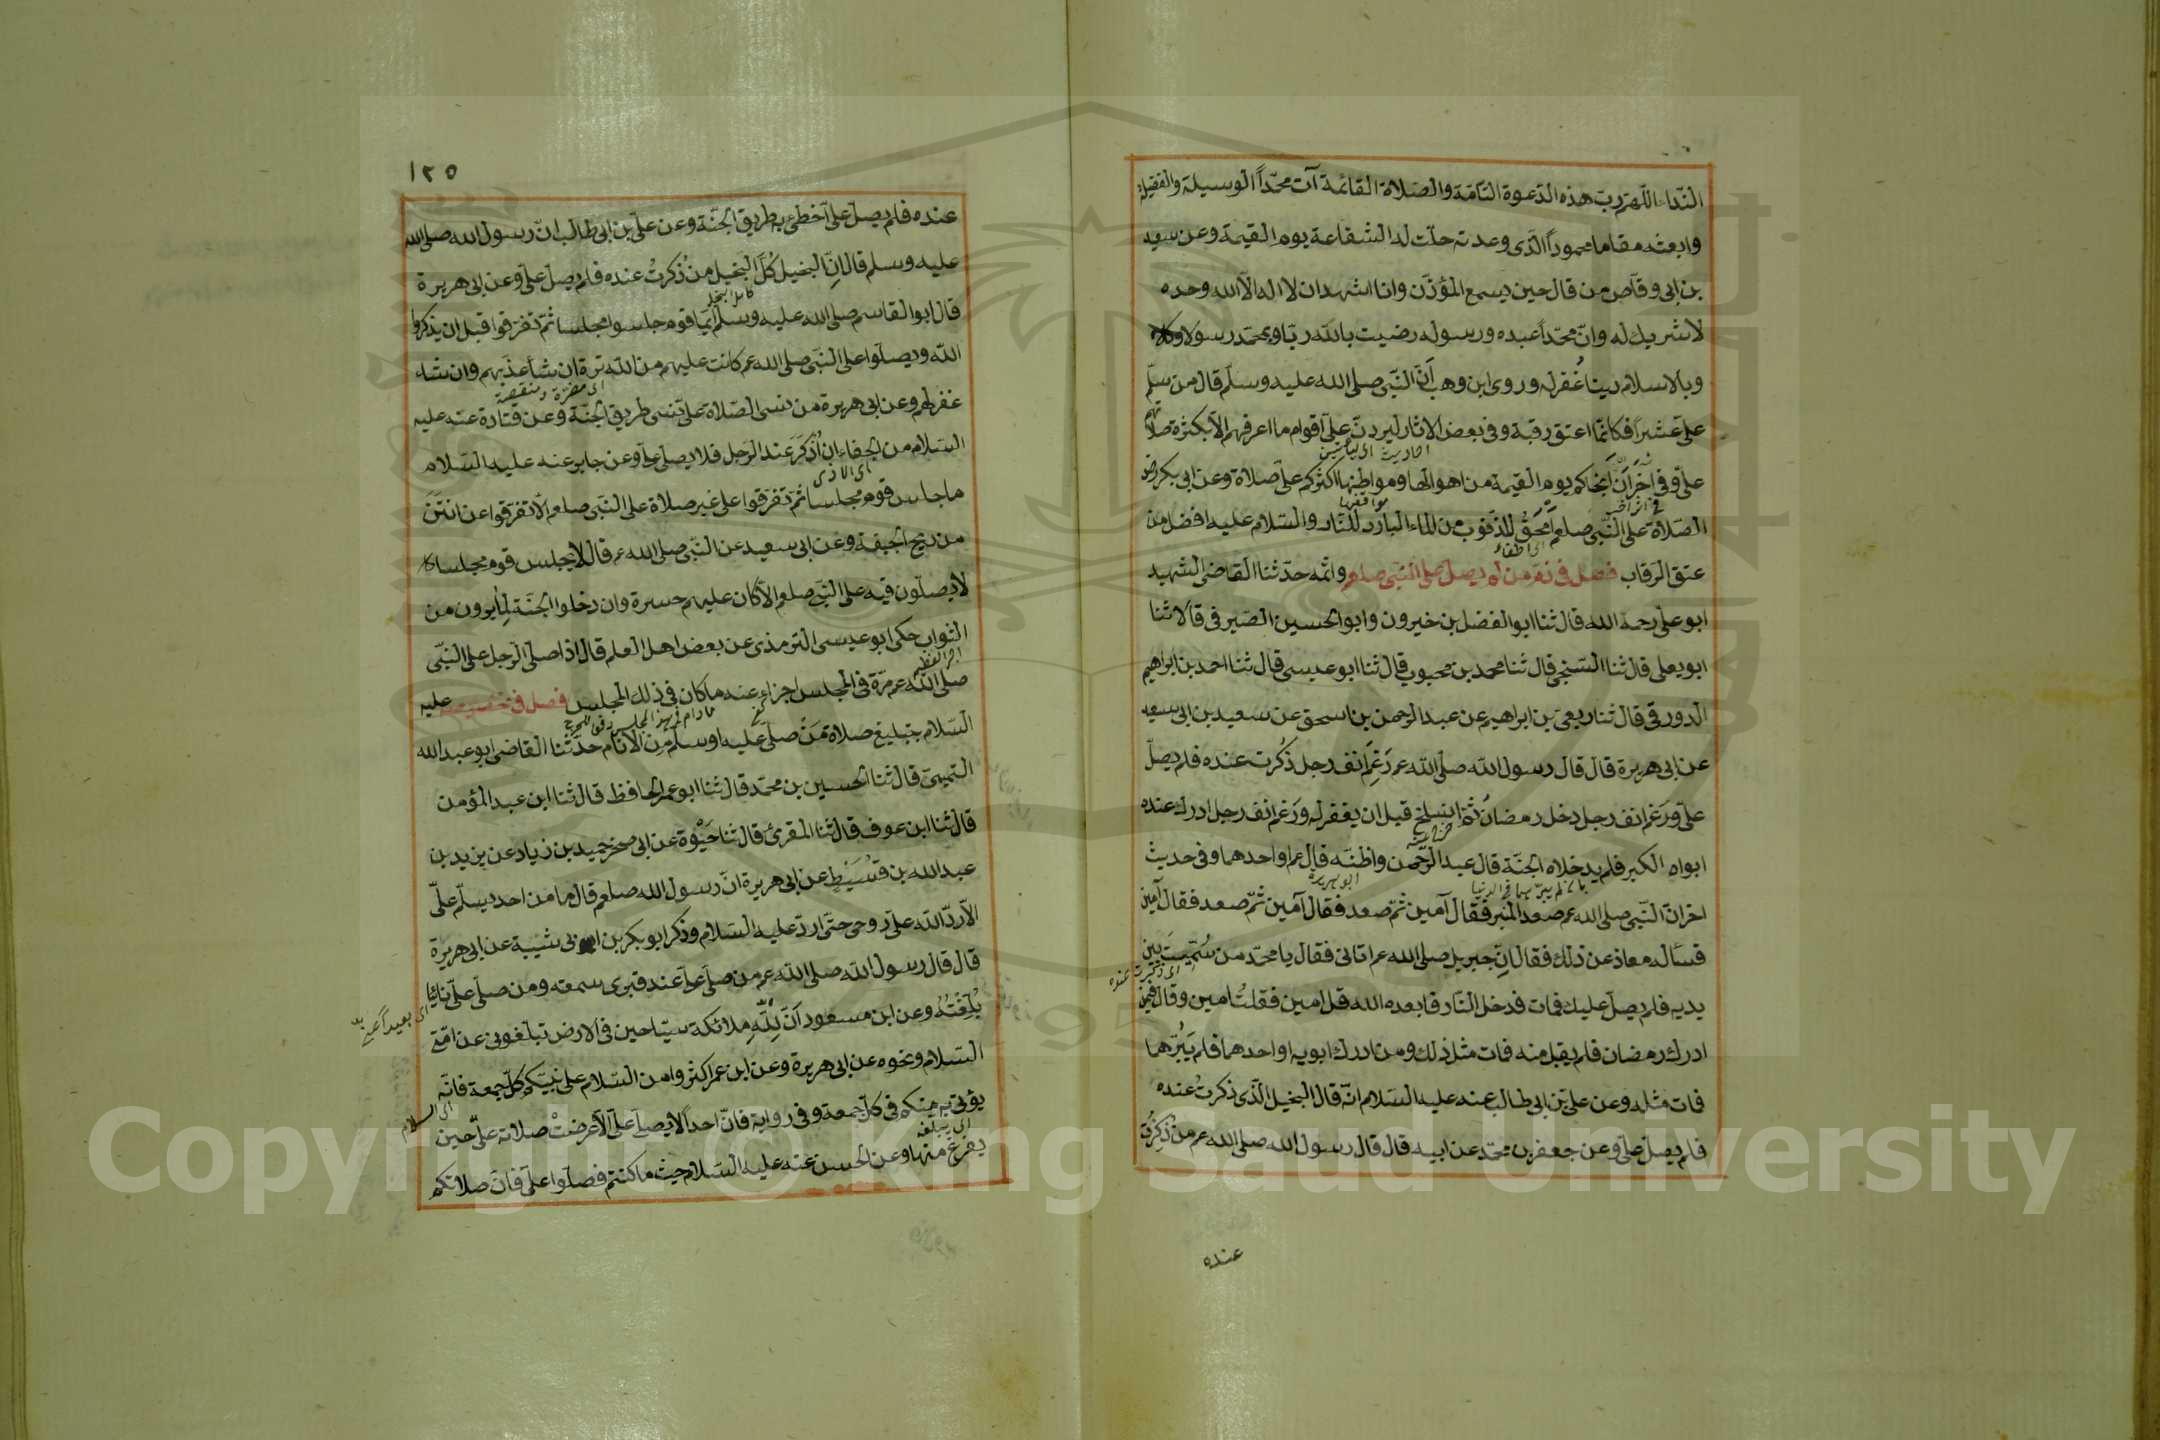 النداء اللهم رب هذه الدعوة التامة والصلاة القائمة آت محمدا الوسيلة والفضيلة
وابعثه مقاما محمودا الذي وعدته حلت له الشفاعة يوم القيمة وعن سعد
بن ابى وقاص من قال حين يسمع المؤذن وانا اشهد ان لا اله الا الله وحده
لا شريك له وان محمدا عبده ورسوله رضيت بالله ربا وبمحمد رسولا
وبالاسلام دينا غُفر له وروى ابن وهب أن النبى صلى الله عليه وسلم قال من سلم
على عشرا فكانما اعتق رقبة وفى بعض الاثار ليردن على اقوام ما اعرفهم الا بكثرة صلاتهم
احاديث
على وفى اخَر أن انجاكم يوم القيمة من اهوالها ومواطنها اكثركم على صلاة وعن ابى بكر رض
مواقفها
الصلاة على النبى صلعم أمحَقُ للذنوب من الماء البارد للنار والسلام عليه افضل من
اى اطفاء
عتق الرقاب فصل فى ذم من لم يصل على النبى صلعم واثمه حدثنا القاضى الشهيد
ابو على رحمه الله قال ثنا ابو الفضل بن خيرون وابو الحسين الصير فى قالا ثنا
ابو يعلى قال ثنا السنجى قال ثنا محمد بن محبوب قال ثنا ابو عيسى قال ثنا احمد بن ابراهيم
الدورقى قال ثنا ربعى بن ابراهيم عن عبد الرحمن بن اسحق عن سعيد بن ابى سعيد
عن ابى هريرة قال قال رسول الله صلى الله عم رَغِمَ انف رجل ذُكرت عنده فلم يصل
على ورَغم انف رجل دخل رمضان ثم انسلخ قبل ان يغفر له ورَغم انف رجل ادرك عنده
ابواه الكبر فلم يدخلاه الجنة قال عبد الرحمن واظنه قال عم او احدهما وفى حديث
ابو هريرة
اخر ان النبى صلى الله عم صعد المنبر فقال آمين ثم صعد فقال آمين ثم صعد فقال آمين
فسأله معاذ عن ذلك فقال ان جبريل صلى الله عم اتانى فقال يا محمد من سُمّيتَ بين
اى ذكرت عنده
يديه فلم يصل عليك فمات فدخل النار فابعده الله قل امين فقلتُ امين وقال فيمن
ادرك رمضان فلم يقبل منه فمات مثل ذلك ومن ادرك ابويه او احدهما فلم يَبُرّهما
فمات مثله وعن على بن ابى طالب عنه عليه السلام انه قال البخيل الذى ذكرتُ عنده
فلم يصل على وعن جعفر بن محمد عن ابيه قال قال رسول الله صلى الله عم من ذُكِرْتُ
عنده
١٢٥
عنده فلم يصل على أخطئ به طريق الجنة وعن على بن ابى طالب ان رسول الله صلى الله
عليه وسلم قال انّ البخيل كُلَّ البخيل من ذُكرتُ عنده فلم يصل على وعن ابى هريرة
كامل البخل
قال ابو القاسم صلى الله عليه وسلم ايما قوم جلسوا مجلسا ثم تفرقوا قبل ان يذكروا
الله ويصلوا على النبى صلى الله عم كانت عليهم من الله ترة ان شاء عذبهم وان شاء
اى مضرة ومنقصة
غفر لهم وعن ابى هريرة من نسى الصلاة على نسى طريق الجنة وعن قتادة عنه عليه
السلام من الجفاء ان أُذكَرَ عند الرجل فلا يصلى على وعن جابر عنه عليه السلام
اى الاذى
ما جلس قوم مجلسا ثم تفرقوا على غير صلاة على النبى صلعم الا تفرقوا عن انتَنَ
من ريح الجيفة وعن ابى سعيد عن النبى صلى الله عم قال لا يجلس قوم مجلسا
لا يصلون فيه على النبى صلعم الا كان عليهم حسرة وان دخلوا الجنة لما يرون من
الثواب حكى ابو عيسى الترمذى عن بعض اهل العلم قال اذا صلى الرجل على النبى
صلى الله عم مرة فى المجلس اجزاء عنه ما كان فى ذلك المجلس فصل فى تخصيصه عليه
السلام بتبليغ صلاة مَنْ صلى عليه او سلم من الانام حدثنا القاضى ابو عبد الله
التميمى قال ثنا الحسين بن محمد قال ثنا ابو عمر الحافظ قال ثنا ابن عبد المؤمن
قال ثنا ابن عوف قال ثنا المقرئ قال ثنا حَيْوة عن ابى صخر حميد بن زياد عن يزيد بن
عبد الله بن قُسَيْط عن ابى هريرة ان رسول الله صلعم قال ما من احد يسلم على
الا رد الله على روحى حتى ارد عليه السلام وذكر ابو بكر بن ابى شيبة عن ابى هريرة
قال قال رسول الله صلى الله عم من صلى على عند قبرى سمعته ومن صلى على نائيا
اى بعيدا
بُلِّغْتُهُ وعن ابن مسعود أنّ لِلّهِ ملائكة سياحين فى الارض تبلغونى عن امتى
السلام ونحوه عن ابى هريرة وعن ابن عمر اكثروا من السلام على نبيكم كل جمعة فانه
يؤتى به منكم فى كل جمعة وفى رواية فان احدا لا يصلى على الا عُرضتْ صلاته على حين
اى السلام
يفرغ منها وعن الحسن عنه عليه السلام حيث ما كنتم فصلوا على فان صلاتكم
Copyright © King Saud University